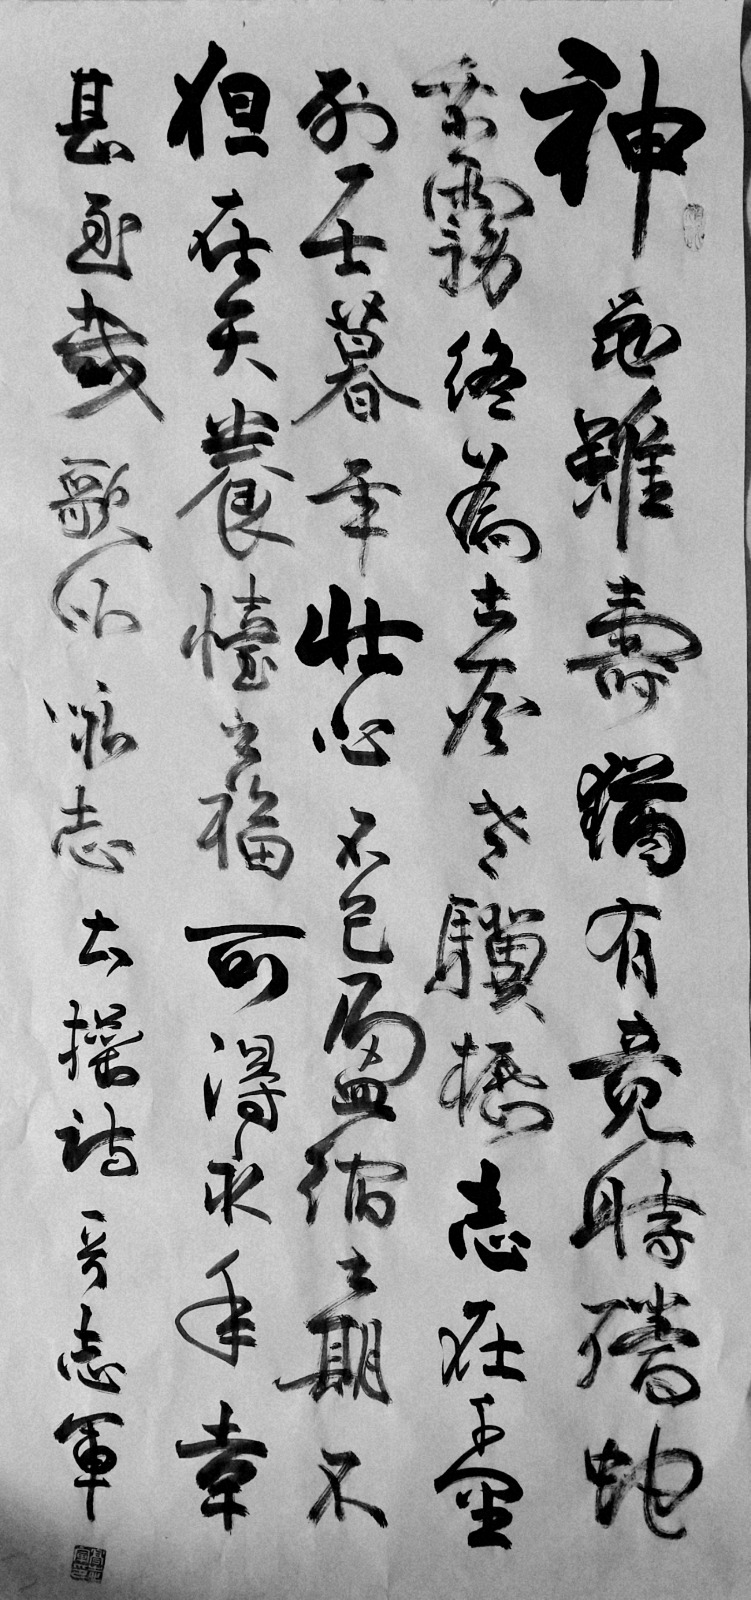 神龜雖壽猶有竟時騰蛇
乘霧終為土灰老驥櫪志在千里
烈士暮年壯心不已盈縮之期不
但在天養怡之福可得永年幸
甚至哉歌以詠志操詩志軍